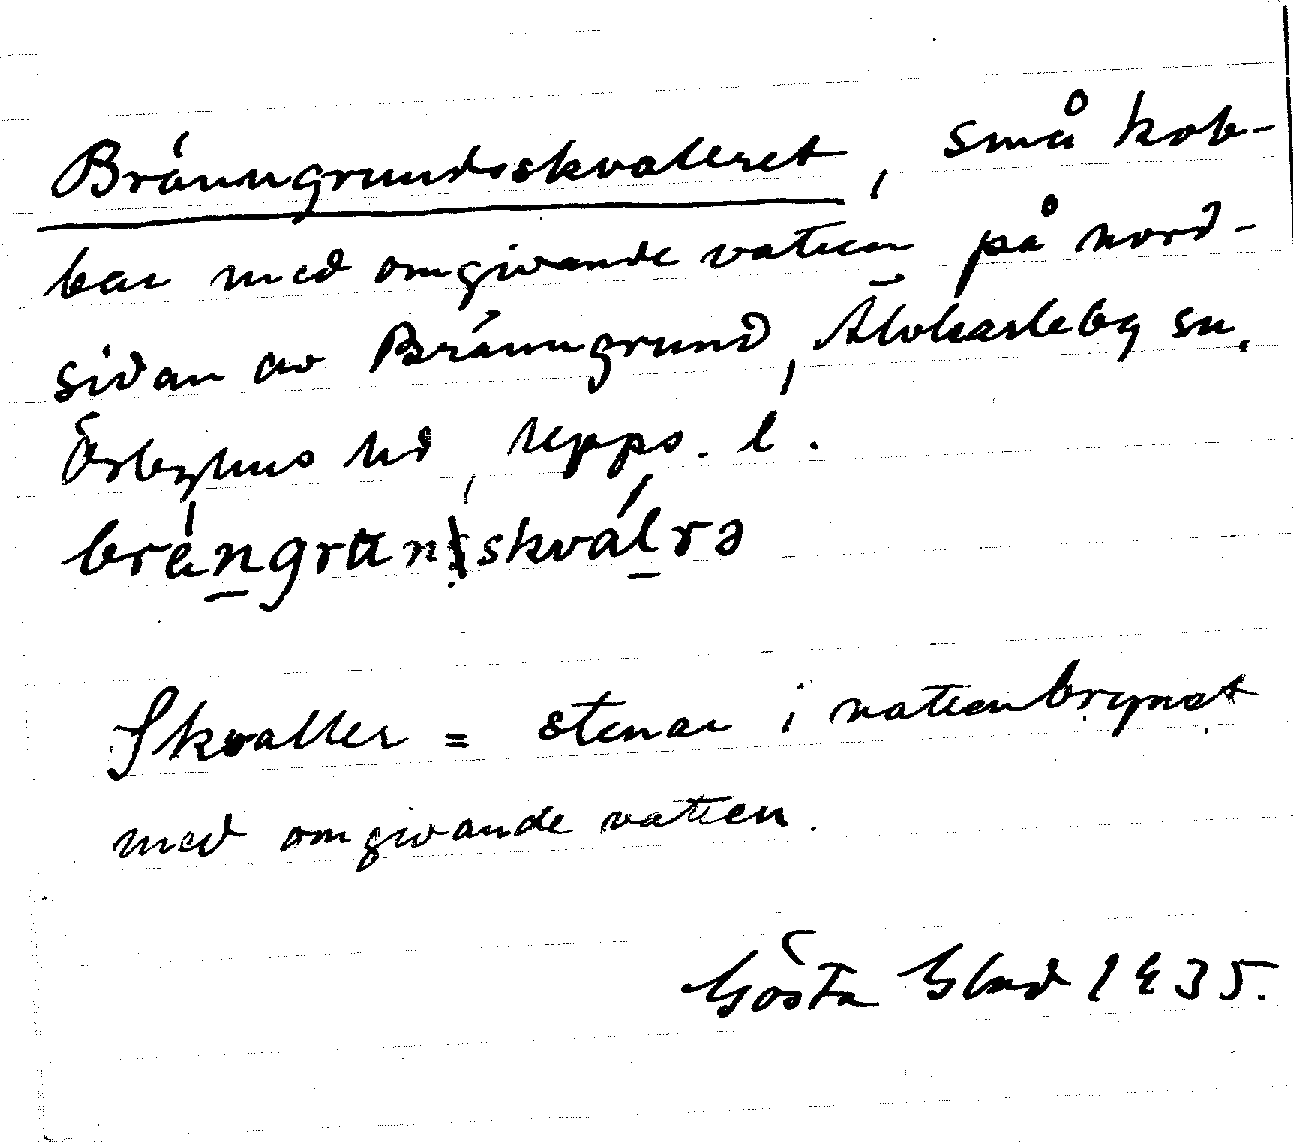 Bränngrundsskvallret, små kob-
bar med omgivande vatten på nord-
sidan av Bränngrund, Älvkarleby sn,
Örbyhus hd, Upps. l.
bräŋgrunskválrə
Skvaller = stenar i vattenbrynet
med omgivande vatten.
Gösta Blad 1935.